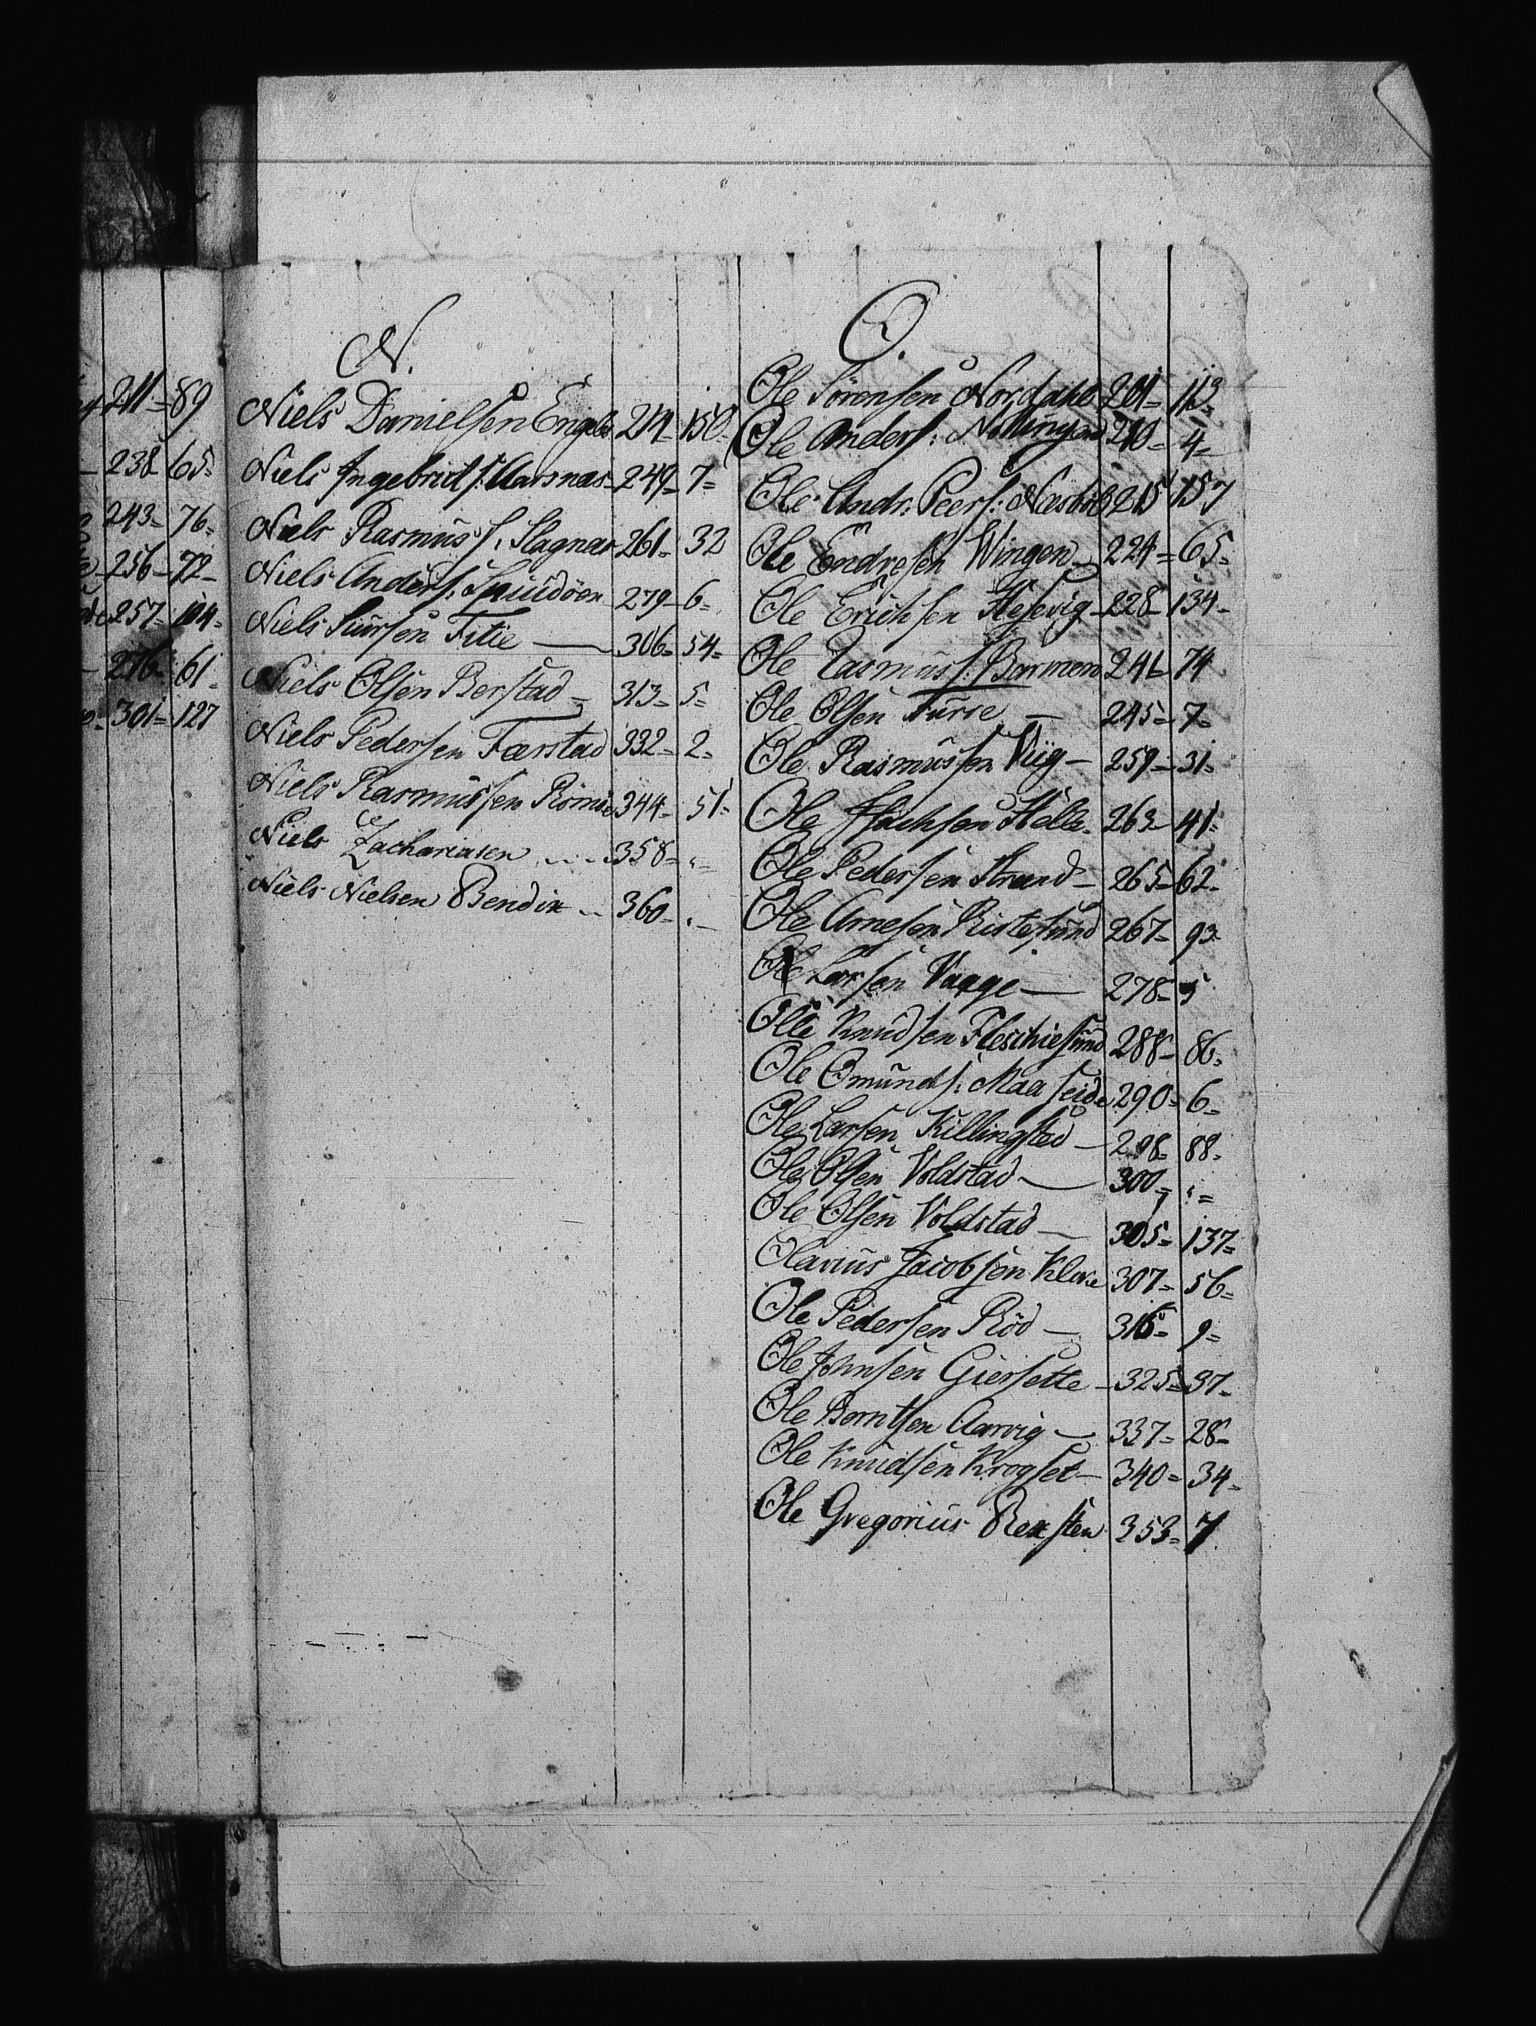 211 - 89
238 - 65 -
243 - 76 -
256 - 72 -
257 - 104 -
276 - 61 -
301 - 127
N.
Niels Danielsen Engebr 214 - 150 -
Niels Ingebrict s: Aarsnas - 249 - 7 =
Niels Rasmus s: Slagnæs 261 - 32
Niels Anders s: 279 - 6 =
Niels Siursen Fitie — 306 - 54 -
Niels Olsen Berstad - 313 - 5 -
Niels Pedersen Færstad 332 - 2 -
Niels Rasmussen 344 - 51 -
Niels Zachariasen - - - 358 - " -
Niels Nielsen Bendix - - 360 - " -
O.
Ole Sørensen Nordahl 201 - 113 -
Ole Anders: 210 - 4 -
Ole Andr: Peers: 215 157
Ole Endresen Wingen - 224 - 65 -
Ole Erichsen 228 - 134 -
Ole Rasmus s: Barmen 241 - 74
Ole Olsen Furre — 245 - 7 -
Ole Rasmussen Viig - 259 - 31 -
Ole Isachsen Helle - 263 - 41 -
Ole Pedersen Strand - 265 - 62 -
Ole Arnesen Ristesund 267 - 93 -
Ole Larsen Vaage — 278 - 5
Olle Knudsen Fleschiesund 288 - 86 -
Ole Omunds: Maaseide 290 - 6 -
Ole Larsen Killingstad - 298 - 88 -
Ole Olsen Voldstad — 300 - " =
Ole Olsen Voldstad — 305 - 137 -
Olavius Jacobsen 307 - 56 -
Ole Pedersen Röd — 316 - 9 -
Ole Johnsen Giersette - 325 - 37 -
Ole Berntsen Aarvig — 337 - 28 -
Ole Knudsen Krogset - 340 - 34 -
Ole Gregorius Rexsten 353 - 7